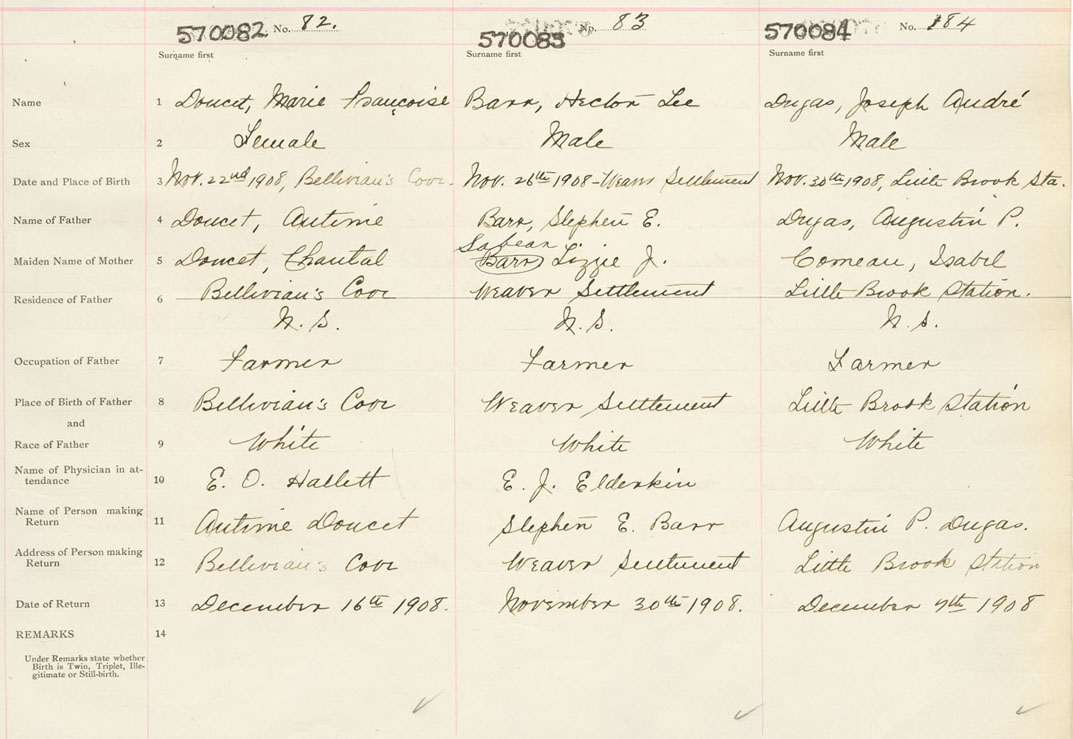 570082 No. 82. 570083 No. 83 570084 No. 184
Surname first Surname first Surname first
Name 1 Doucet, Marie Françoise Barr, Hector Lee Dugas, Joseph André
Sex 2 Female Male Male
Date and Place of Birth 3 Nov. 22nd 1908, Bellivian's Cove. Nov. 26th 1908 - Weaver Settlement Nov. 30th 1908, Little Brook Sta.
Name of Father 4 Doucet, Antime Barr, Stephen E. Dugas, Augustin P.
Sabean
Maiden Name of Mother 5 Doucet, Chantal Barr Lizzie J. Comeau, Isabel
Residence of Father 6 Bellivian's Cove Weaver Settlement Little Brook Station.
N. S. N. S. N. S.
Occupation of Father 7 Farmer Farmer Farmer
Place of Birth of Father 8 Bellivian's Cove Weaver Settlement Little Brook Station
and
Race of Father 9 White White White
Name of Physician in at-
tendance 10 E. O. Hallett E. J. Elderkin
Name of Person making
Return 11 Antime Doucet Stephen E. Barr Augustin P. Dugas.
Address of Person making
Return 12 Bellivian's Cove Weaver Settlement Little Brook Station
Date of Return 13 December 16th 1908. November 30th 1908. December 7th 1908
REMARKS 14
Under Remarks state whether
Birth is Twin, Triplet, Ille-
gitimate or Still-birth.